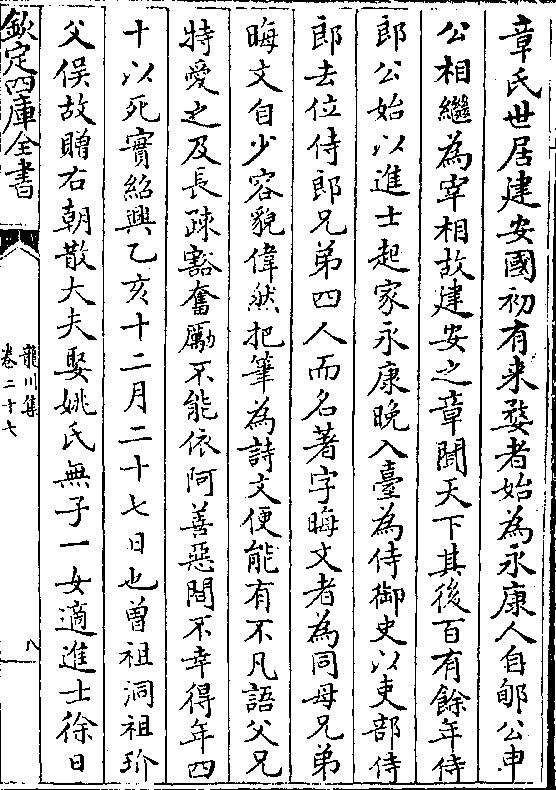 章氏世居建安國初有来婺者始為永康人自郇公申
公相繼為宰相故建安之章聞天下其後百有餘年侍
郎公始以進士起家永康晚入臺為侍御史以吏部侍
郎去位侍郎兄弟四人而名著字晦文者為同母兄弟
晦文自少容貌偉然把筆為詩文便能有不凡語父兄
特愛之及長疎豁奮勵不能依阿善惡間不幸得年四
十以死實紹興乙亥十二月二十七日也曽祖洞祖玠
父俣故贈右朝散大夫娶姚氏無子一女適進士徐日
欽定四庫全書
龍川集
卷二十七
八